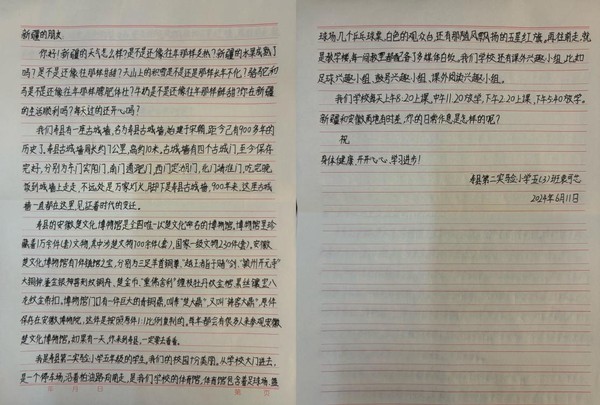 新疆的朋友
你好！新疆的天气怎么样？是不是还像往年那样炎热？新疆的水果成熟了
吗？是不是还像往年那样甘甜？天山上的积雪是不是还是那样长年不化？骆驼和
马是不是还像往年那样膘肥体壮？牛奶是不是还像往年那样鲜甜？你在新疆
的生活顺利吗？每天过的还开心吗？
我们寿县有一座古城墙，名为寿县古城墙，始建于宋朝，距今已有900多年的
历史了，寿县古城墙周长约7公里，高约10米，古城墙有四个古城门，至今保存
完好，分别为东门宾阳门，南门通淝门，西门定湖门，北门靖淮门，吃完晚
饭到城墙上走走，不远处是万家灯火，脚下是寿县古城墙，900年来，这座古城
墙一直都在这里见证着时代的变迁。
寿县的安徽楚文化博物馆是全国唯一以楚文化命名的博物馆，博物馆里珍
藏着1万余件(套)文物，其中涉楚文物700余件(套)，国家一级文物230件(套)。安徽
楚文化博物馆有7件镇馆之宝，分别为三足羊首铜鼎、"越王者旨于赐"剑、
大铜钟、
博物馆门口有一件巨大的青铜鼎，叫希"楚大鼎"，又叫"铸客大鼎"，原件
保存在安徽博物院，这件是按照原件1:1比例复制的。每年都会有很多人来参观安徽
楚文化博物馆，如果有一天，你来到寿县，一定要去看看。
我是寿县第二实验小学五年级的学生。我们的校园十分美丽。从学校大门进去，
是一个停车场，沿着柏油路向前走，是我们学校的体育馆，体育馆包含着足球场、篮
年 月 日 第 页
球场、几个乒乓球桌、白色的观众台，还有那随风飘扬的五星红旗，再往前走，就
是教学楼，每一间教室都配备了多媒体白板。我们学校还有课外兴趣小组，比如
足球兴趣小组、鼓号兴趣小组、课外阅读兴趣小组。
我们学校每天上午8:20上课，中午11:20放学，下午2:20上课，下午5:40放学。
新疆和安徽两地有时差，你的日常作息是怎样的呢？
祝
身体健康，开开心心，学习进步！
寿县第二实验小学五(3)班
2024年6月11日